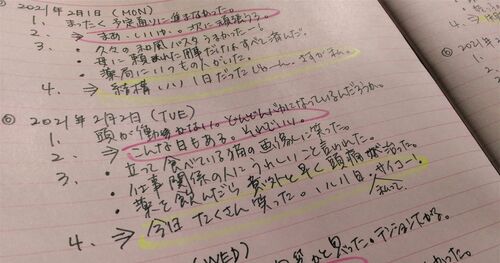 ⑤ 2021年2月1日 (MON)
1. まったく予定通りに進まなかった。
2. ⇒ まあ、いいか。次に頑張ろう。
3. ・久々の和風パスタうまかったー!
・母に頼まれた用事だけはすべて済んだ。
・薬局にいつもの人がいた。
4. ⇒ 結構いい1日だったじゃーん。さすが私。
⑥ 2021年2月2日 (TUE)
1. 頭が働かない。どんどんバカになっているんだろうか。
2. ⇒ こんな日もある。それでいい。
3. ・立って食べている猫の画像に笑った。
・仕事関係の人にうれしいこと言われた。
・薬を飲んだら意外と早く頭痛が治った。
4. ⇒ 今日たくさん笑った。いい1日。サイコー!
私って、
(WED)
と思った。テンション下がる。
2021年
1.
2.